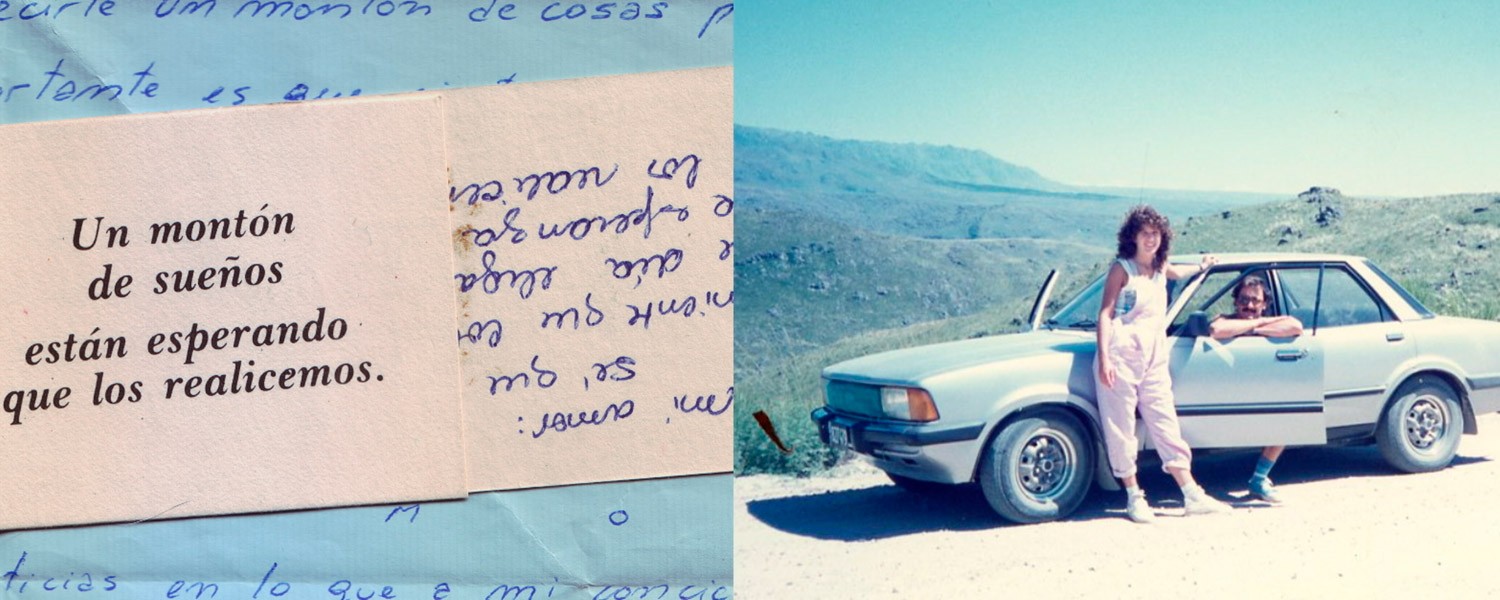 ecirle un montón de cosas p
ortante es que
Un montón
de sueños
están esperando
que los realicemos.
mi amor:
se, que
niente que los
día llega
e esperanza
los realicem
M o
ticias en lo que a mi concie